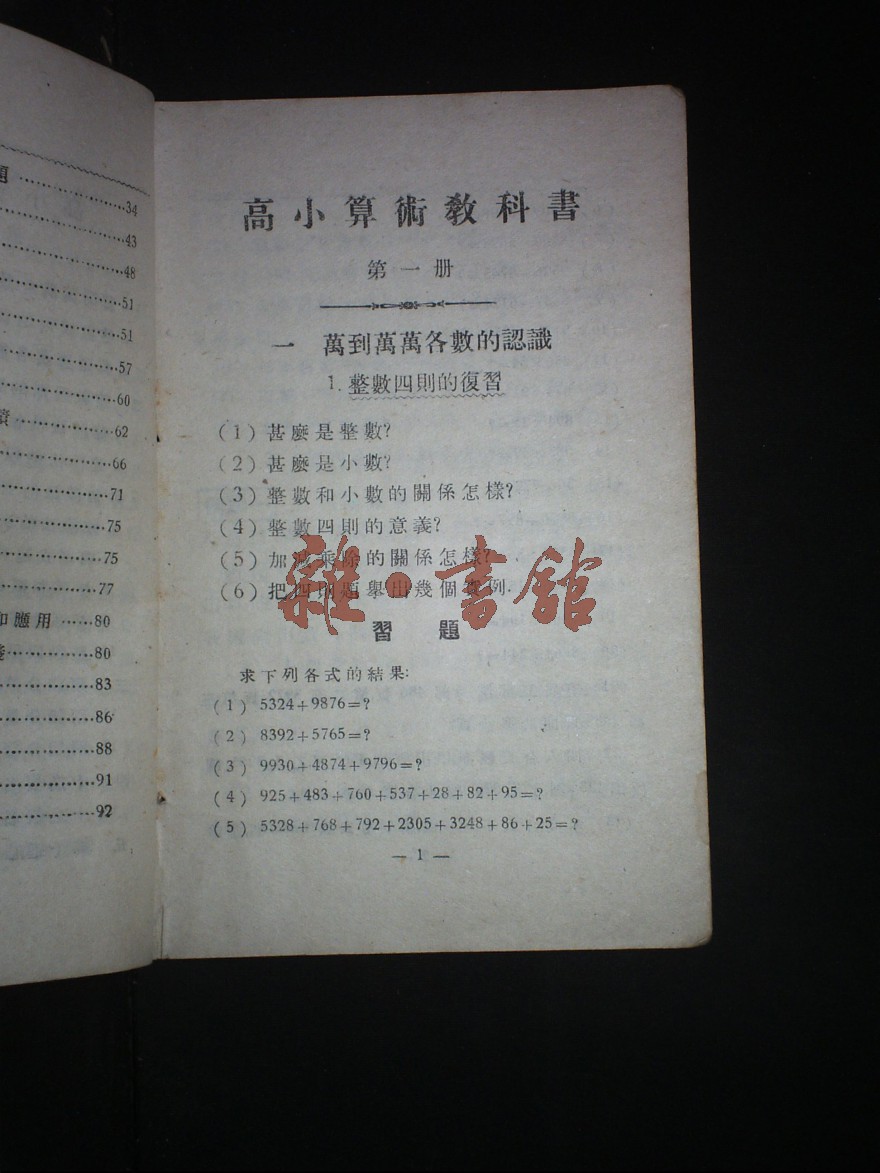 題 ……………34
43
48
51
51
57
60
62
66
71
75
75
77
印應用 ……80
80
83
86
88
91
92
高小算術教科書
第一册
一 萬到萬萬各數的認識
1. 整數四則的復習
(1) 甚麽是整數?
(2) 甚麽是小數?
(3) 整數和小數的關係怎樣?
(4) 整數四則的意義?
(5) 加減乘除的關係怎樣?
(6) 把四則題舉出幾個實例.
雜·書館
習題
求下列各式的結果:
(1) 5324+9876=?
(2) 8392+5765=?
(3) 9930+4874+9796=?
(4) 925+483+760+537+28+82+95=?
(5) 5328+768+792+2305+3248+86+25=?
— 1 —